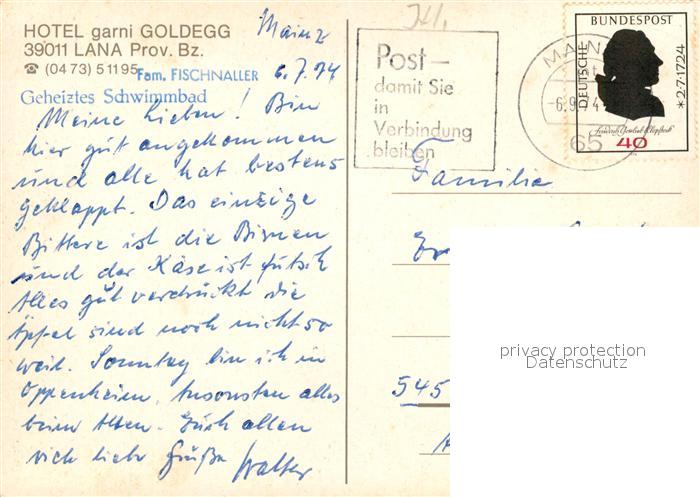 HOTEL garni GOLDEGG
39011 LANA Prov. Bz.
☎ (0473) 51195 Fam. FISCHNALLER
Geheiztes Schwimmbad
Mainz
6.7.74
Meine Lieben! Bin
hier gut angekommen
und alle hat bestens
geklappt. Das einzige
Bittere ist die Birnen
und der Käse ist futsch
Alles gut verdrückt die
Äpfel sind noch nicht so
weit. Sonntag bin ich in
Oppenheim, Ansonsten alles
beim Alten. Euch allen
viele liebe Grüße Walter
Post –
damit Sie
in
Verbindung
bleiben
MAIN
-6.9. 4
65
DEUTSCHE
BUNDESPOST
*2·7·1724
Friedrich Gottlieb Klopstock
40
Familie
545
privacy protection
Datenschutz